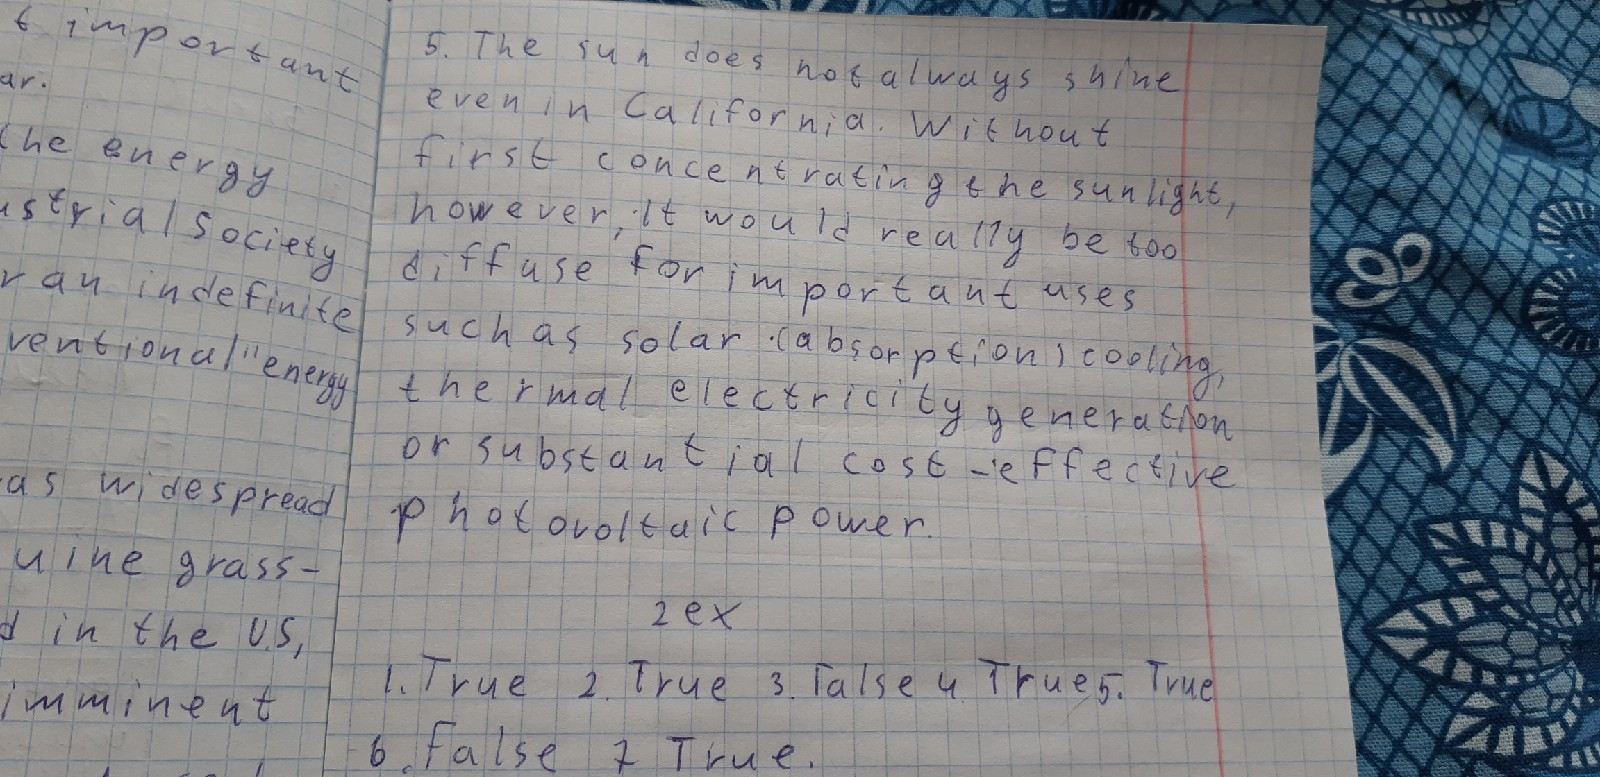 t important
ar.
the energy
ustrial society
r an indefinite
ventional" energy
as widespread
uine grass-
d in the U.S,
imminent
5. The sun does not always shine
even in California. Without
first concentrating the sunlight,
however, it would really be too
diffuse for important uses
such as solar (absorption) cooling,
thermal electricity generation
or substantial cost-effective
photovoltaic power.
2 ex
1. True 2. True 3. False 4. True 5. True
6. False 7 True.